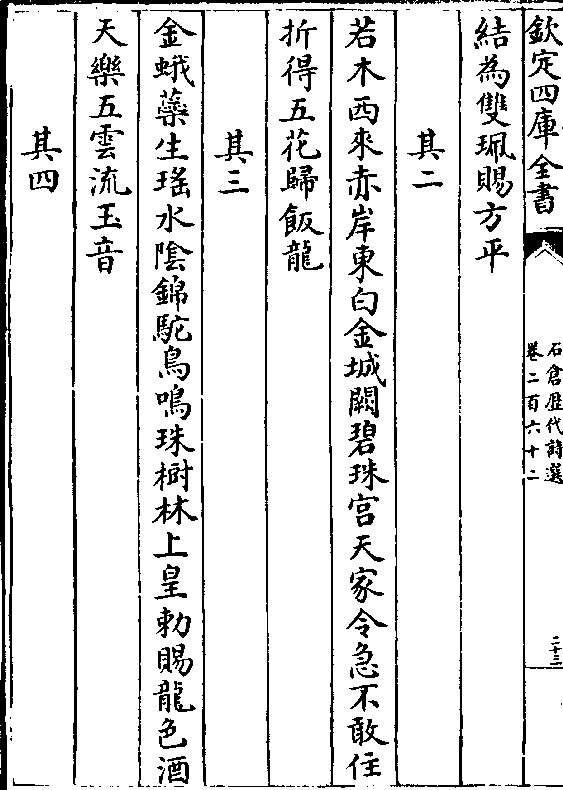 欽定四庫全書
石倉歴代詩選
卷二百六十二
二十三
結為雙珮賜方平
其二
若木西來赤岸東白金城闕碧珠宫天家令急不敢住
折得五花歸飯龍
其三
金蛾蘂生瑤水陰錦駝鳥鳴珠樹林上皇勅賜龍色酒
天樂五雲流玉音
其四